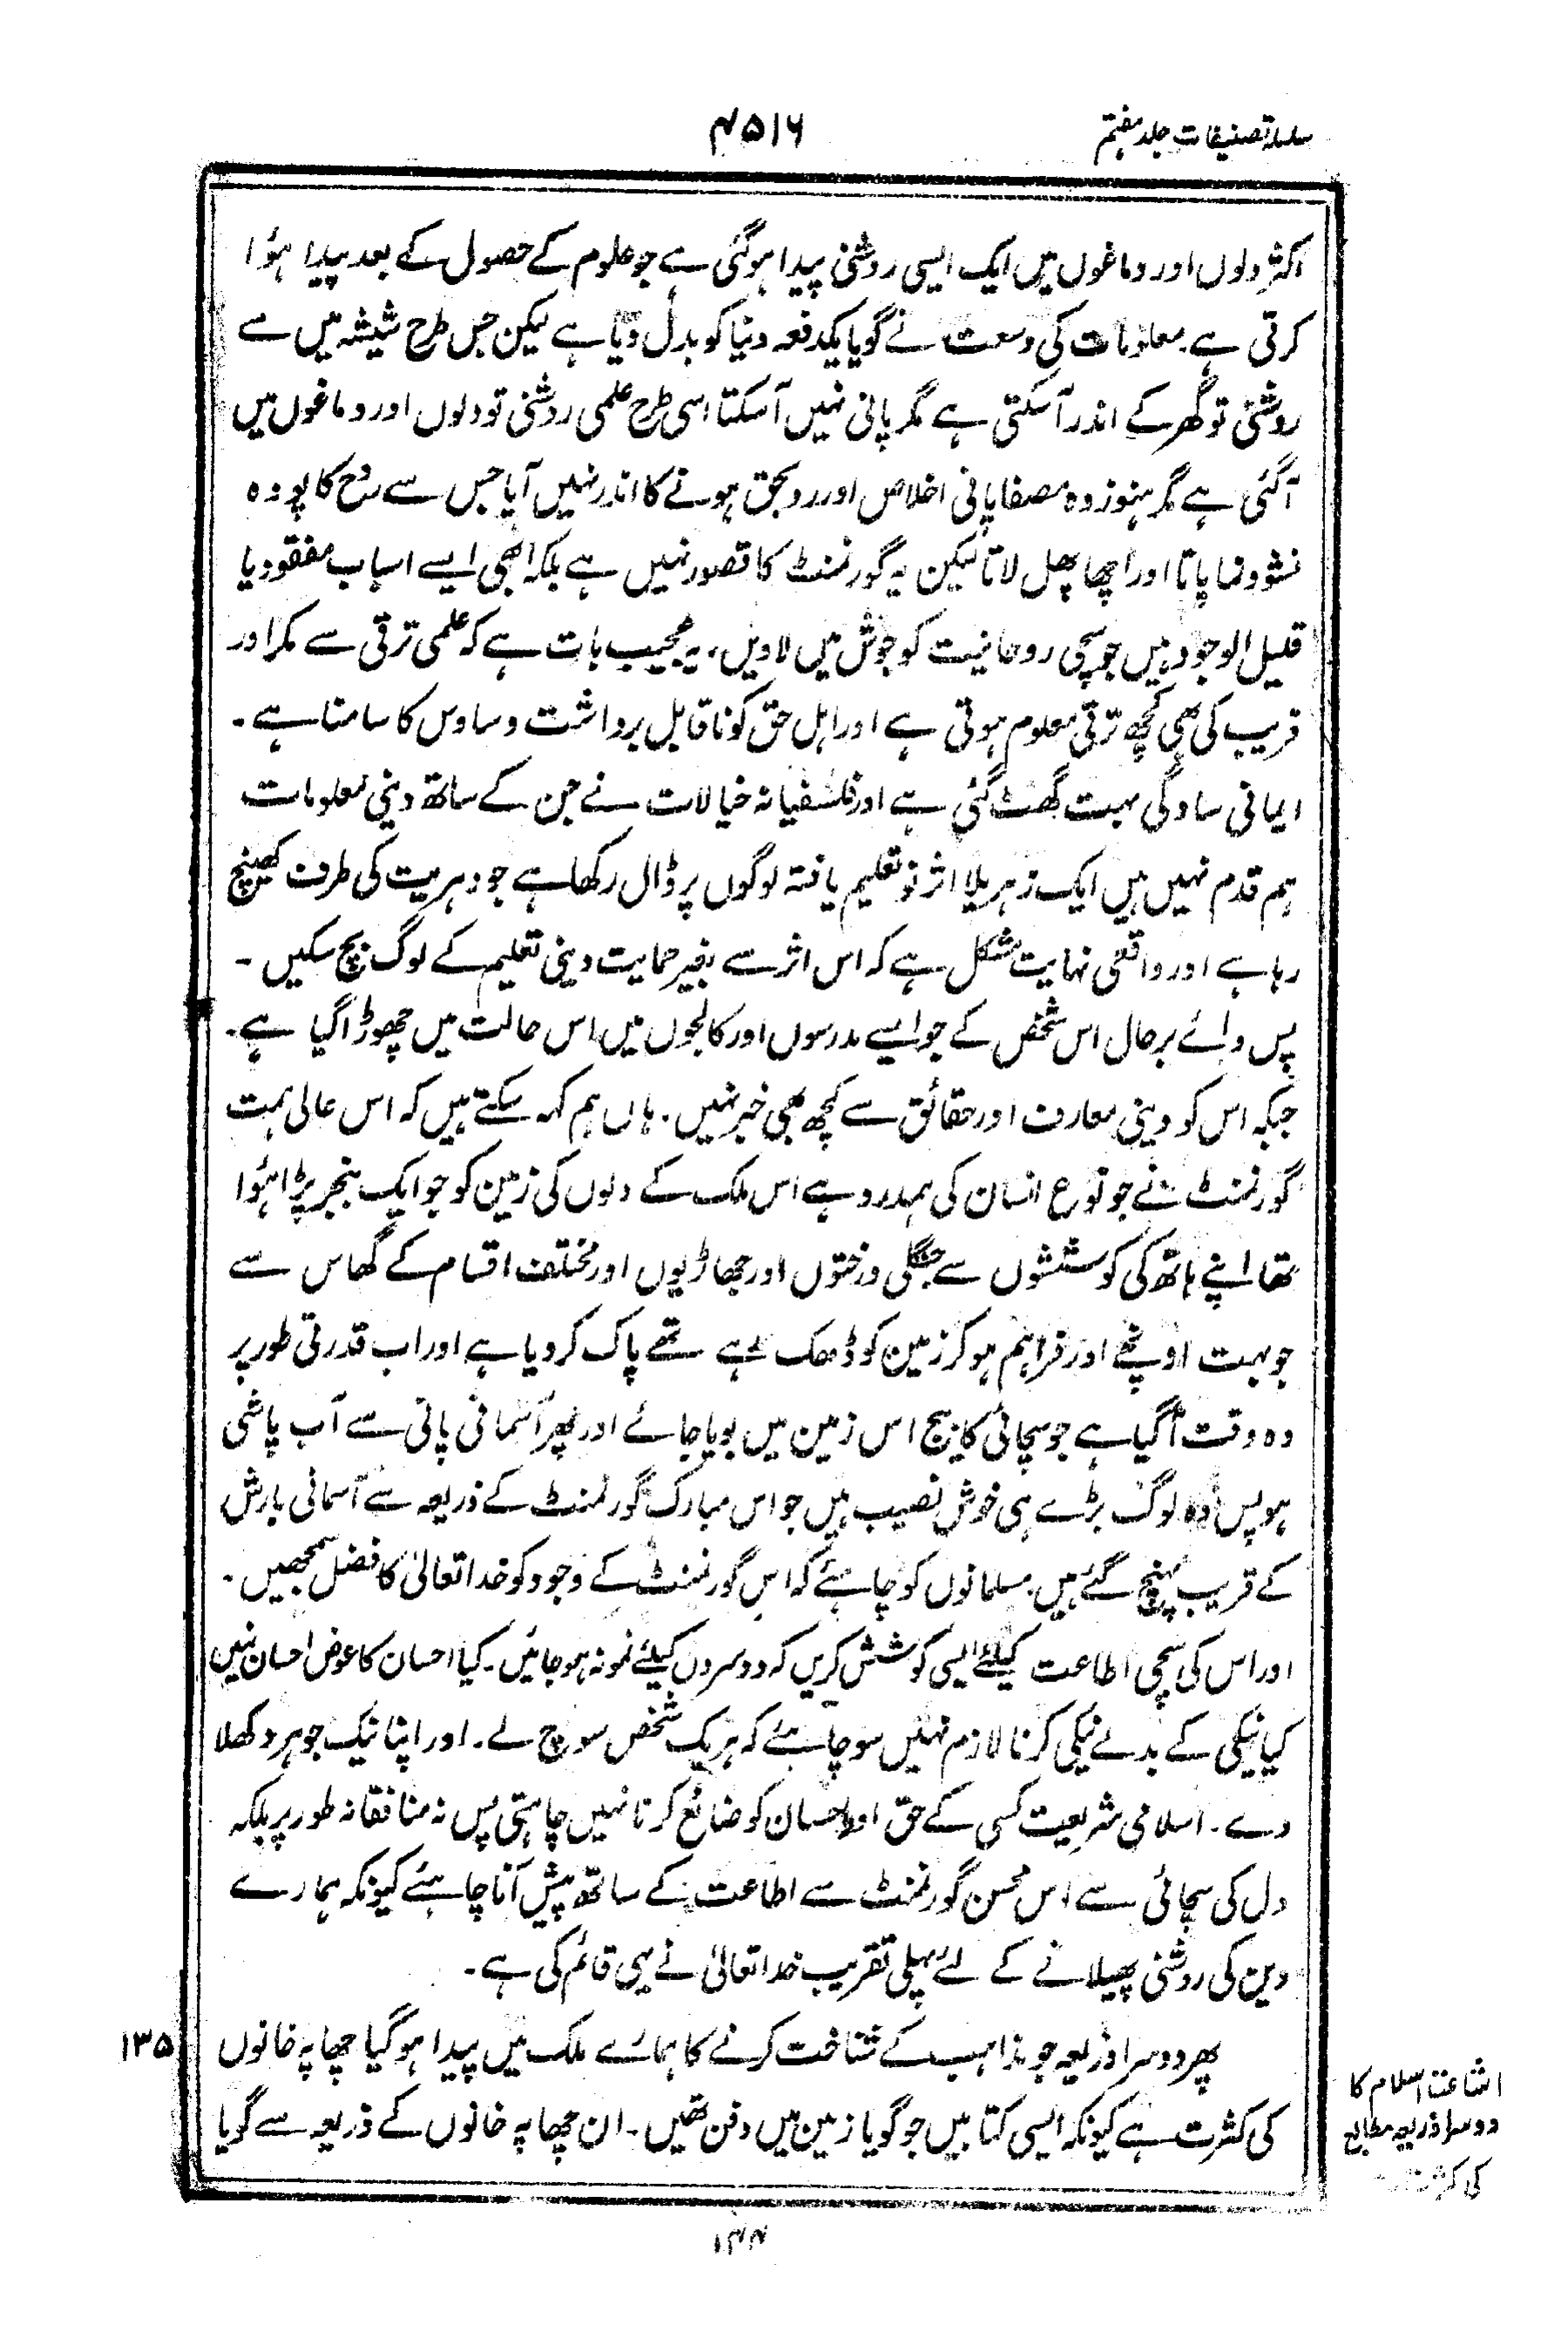 سلسلہ تصنیفات جلد ہفتم
۴۵۱۶
اکثر دلوں اور دماغوں میں ایک ایسی روشنی پیدا ہوگئی ہے جو علوم کے حصول کے بعد پیدا ہؤا
کرتی ہے۔ معلومات کی وسعت نے گویا یکدفعہ دنیا کو بدل دیا ہے لیکن جس طرح شیشہ میں سے
روشنی تو گھر کے اندر آ سکتی ہے مگر پانی نہیں آ سکتا اسی طرح علمی روشنی تو دلوں اور دماغوں میں
آگئی ہے مگر ہنوز وہ مصفا پانی اخلاص اور روبحق ہونے کا اندر نہیں آیا جس سے روح کا پودہ
نشوونما پاتا اور اچھا پھل لاتا لیکن یہ گورنمنٹ کا قصور نہیں ہے بلکہ ابھی ایسے اسباب مفقود یا
قلیل الوجود ہیں جو سچی روحانیت کو جوش میں لاویں، یہ عجیب بات ہے کہ علمی ترقی سے مکر اور
فریب کی بھی کچھ ترقی معلوم ہوتی ہے اور اہل حق کو ناقابل برداشت وساوس کا سامنا ہے۔
ایمانی سادگی بہت گھٹ گئی ہے اور فلسفیانہ خیالات نے جن کے ساتھ دینی معلومات
ہم قدم نہیں ہیں ایک زہریلا اثر نو تعلیم یافتہ لوگوں پر ڈال رکھا ہے جو دہریت کی طرف کھینچ
رہا ہے اور واقعی نہایت مشکل ہے کہ اس اثر سے بغیر حمایت دینی تعلیم کے لوگ بچ سکیں۔
پس وائے برحال اس شخص کے جو ایسے مدرسوں اور کالجوں میں اس حالت میں چھوڑا گیا ہے۔
جبکہ اس کو دینی معارف اور حقائق سے کچھ بھی خبر نہیں۔ ہاں ہم کہہ سکتے ہیں کہ اس عالی ہمت
گورنمنٹ نے جو نوع انسان کی ہمدرد ہے اس ملک کے دلوں کی زمین کو جو ایک بنجر پڑا ہؤا
تھا اپنے ہاتھ کی کوششوں سے جنگلی درختوں اور جھاڑیوں اور مختلف اقسام کے گھاس سے
جو بہت اونچے اور فراہم ہو کر زمین کو ڈھک رہے تھے پاک کر دیا ہے اور اب قدرتی طور پر
وہ وقت آگیا ہے جو سچائی کا بیج اس زمین میں بویا جائے اور پھر آسمانی پانی سے آب پاشی
ہو پس وہ لوگ بڑے ہی خوش نصیب ہیں جو اس مبارک گورنمنٹ کے ذریعہ سے آسمانی بارش
کے قریب پہنچ گئے ہیں۔ مسلمانوں کو چاہئے کہ اس گورنمنٹ کے وجود کو خدا تعالیٰ کا فضل سمجھیں۔
اور اس کی سچی اطاعت کیلئے ایسی کوشش کریں کہ دوسروں کیلئے نمونہ ہو جائیں۔ کیا احسان کا عوض احسان نہیں
کیا نیکی کے بدلے نیکی کرنا لازم نہیں سو چاہئے کہ ہریک شخص سوچ لے۔ اور اپنا نیک جوہر دکھلا
دے۔ اسلامی شریعت کسی کے حق اور احسان کو ضائع کرنا نہیں چاہتی پس نہ منافقانہ طور پر بلکہ
دل کی سچائی سے اس محسن گورنمنٹ سے اطاعت کے ساتھ پیش آنا چاہئے کیونکہ ہمارے
دین کی روشنی پھیلانے کے لئے پہلی تقریب خدا تعالیٰ نے یہی قائم کی ہے۔
پھر دوسرا ذریعہ جو مذاہب کے شناخت کرنے کا ہمارے ملک میں پیدا ہو گیا چھاپہ خانوں
کی کثرت ہے کیونکہ ایسی کتابیں جو گویا زمین میں دفن تھیں۔ ان چھاپہ خانوں کے ذریعہ سے گویا
۱۳۵
اشاعت اسلام کا
دوسرا ذریعہ مطابع
کی کثرت
۱۳۴